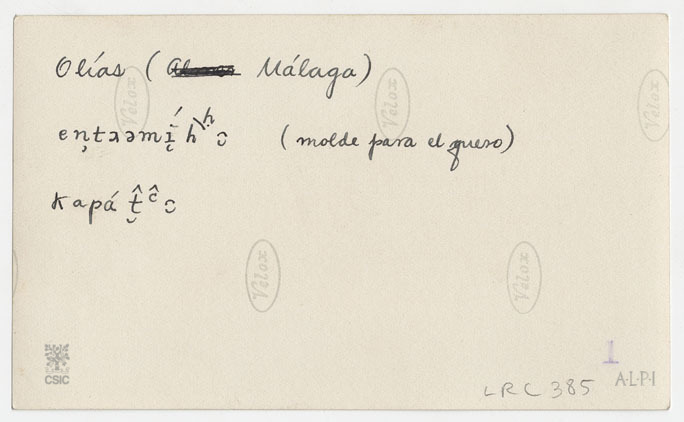 Olías ( Málaga)
en̦tɹəmí̜hʰɔ (molde para el queso)
kapát̮̂ĉɔ
Velox
Velox
Velox
Velox
Velox
CSIC
1
A·L·P·I
LRC 385